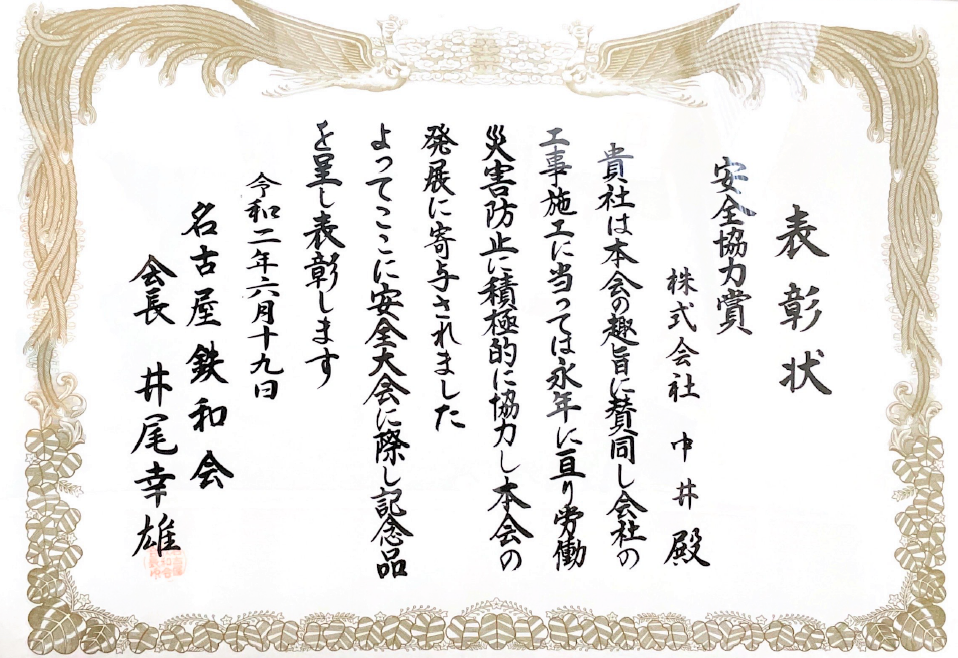 表彰状
安全協力賞
株式会社 中井 殿
貴社は本会の趣旨に賛同し会社の
工事施工に当っては永年に亘り労働
災害防止に積極的に協力し本会の
発展に寄与されました
よってここに安全大会に際し記念品
を呈し表彰します
令和二年六月十九日
名古屋鉄和会
会長 井尾幸雄